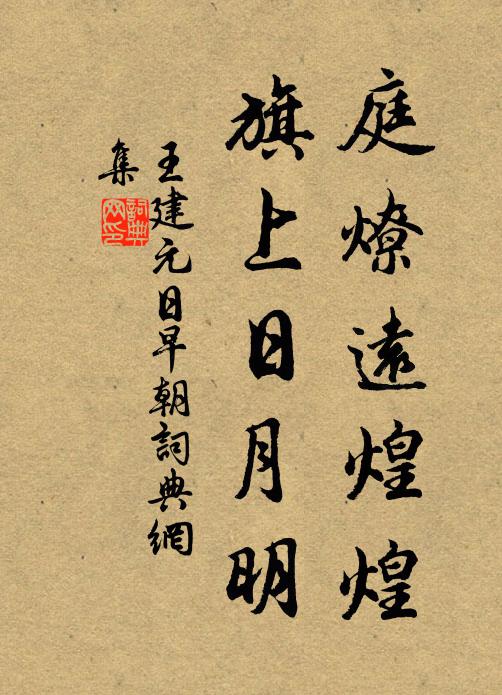 庭燎遠煌煌
旗上日月明
王建元日早朝詞典網
集
詞典網印